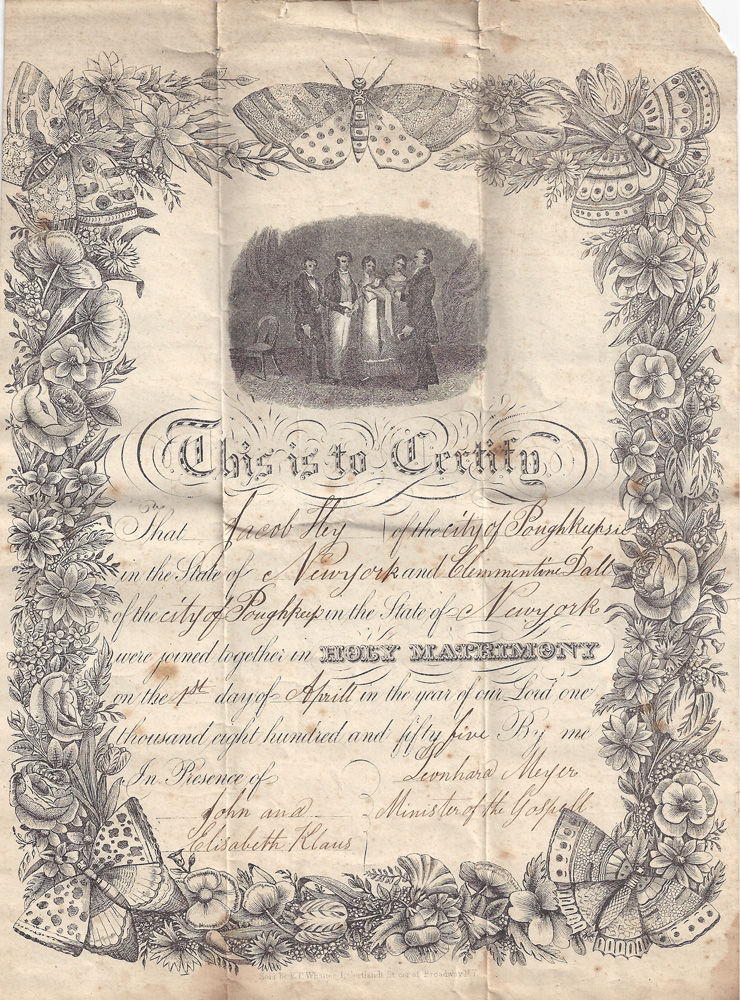 This is to Certify
That Jacob Hey of the city of Poughkepsie
in the State of Newyork and Clemmentine Dall
of the city of Poughkep in the State of Newyork
were joined together in HOLY MATRIMONY
on the 1st day of Aprill in the year of our Lord one
thousand eight hundred and fifty five By me
In Presence of Leonhard Meyer
John and Minister of the Gospell
Elisabeth Klaus
Sold by Cortlandt St cor of Broadway N.Y.